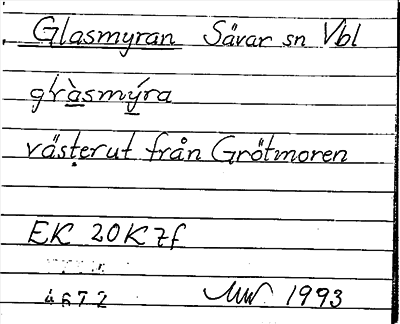 Glasmyran Sävar sn Vbl
glràsmýra
västerut från Grötmoren
EK 20K 7f
4672 MW 1993